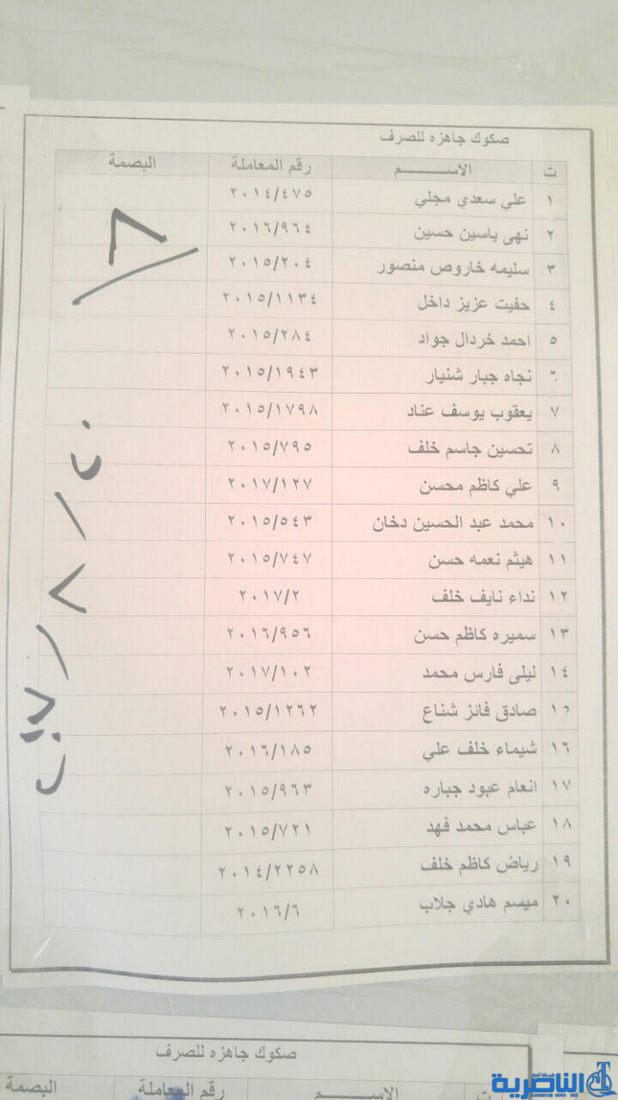 صكوك جاهزه للصرف
ت الاســـــــم رقم المعاملة البصمة
١ علي سعدي مجلي ٢٠١٤/٤٧٥
٢ نهى ياسين حسين ٢٠١٦/٩٦٤
٣ سليمه خاروص منصور ٢٠١٥/٢٠٤
٤ حفيت عزيز داخل ٢٠١٥/١١٣٤
٥ احمد خردال جواد ٢٠١٥/٢٨٤
٦ نجاه جبار شنيار ٢٠١٥/١٩٤٣
٧ يعقوب يوسف عناد ٢٠١٥/١٧٩٨
٨ تحسين جاسم خلف ٢٠١٥/٧٩٥
٩ علي كاظم محسن ٢٠١٧/١٢٧
١٠ محمد عبد الحسين دخان ٢٠١٥/٥٤٣
١١ هيثم نعمه حسن ٢٠١٥/٧٤٧
١٢ نداء نايف خلف ٢٠١٧/٢
١٣ سميره كاظم حسن ٢٠١٦/٩٥٦
١٤ ليلى فارس محمد ٢٠١٧/١٠٢
١٥ صادق فائز شناع ٢٠١٥/١٢٦٢
١٦ شيماء خلف علي ٢٠١٦/١٨٥
١٧ انعام عبود جباره ٢٠١٥/٩٦٣
١٨ عباس محمد فهد ٢٠١٥/٧٢١
١٩ رياض كاظم خلف ٢٠١٤/٢٢٥٨
٢٠ ميسم هادي جلاب ٢٠١٦/٦
صكوك جاهزه للصرف
ت الاســـــــم رقم المعاملة البصمة
الناصرية